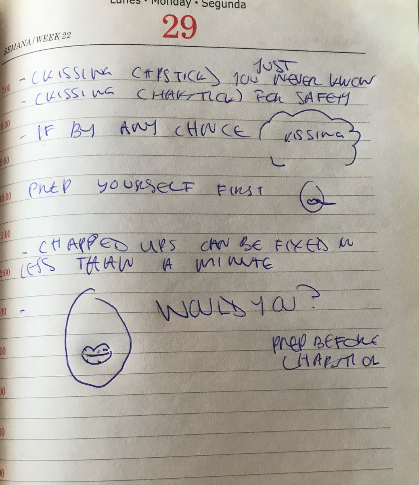 Lunes • Monday • Segunda
29
SEMANA/WEEK 22
JUST
- (KISSING CHPSTICK) YOU NEVER KNOW
- (KISSING CHAPSTICK) FOR SAFETY
- IF BY ANY CHNCE KISSING
PREP YOURSELF FIRST
- CHAPPED LIPS CAN BE FIXED IN
LESS THAN A MINUTE
- WOULD YOU?
PREP BEFORE
CHAPSTICK